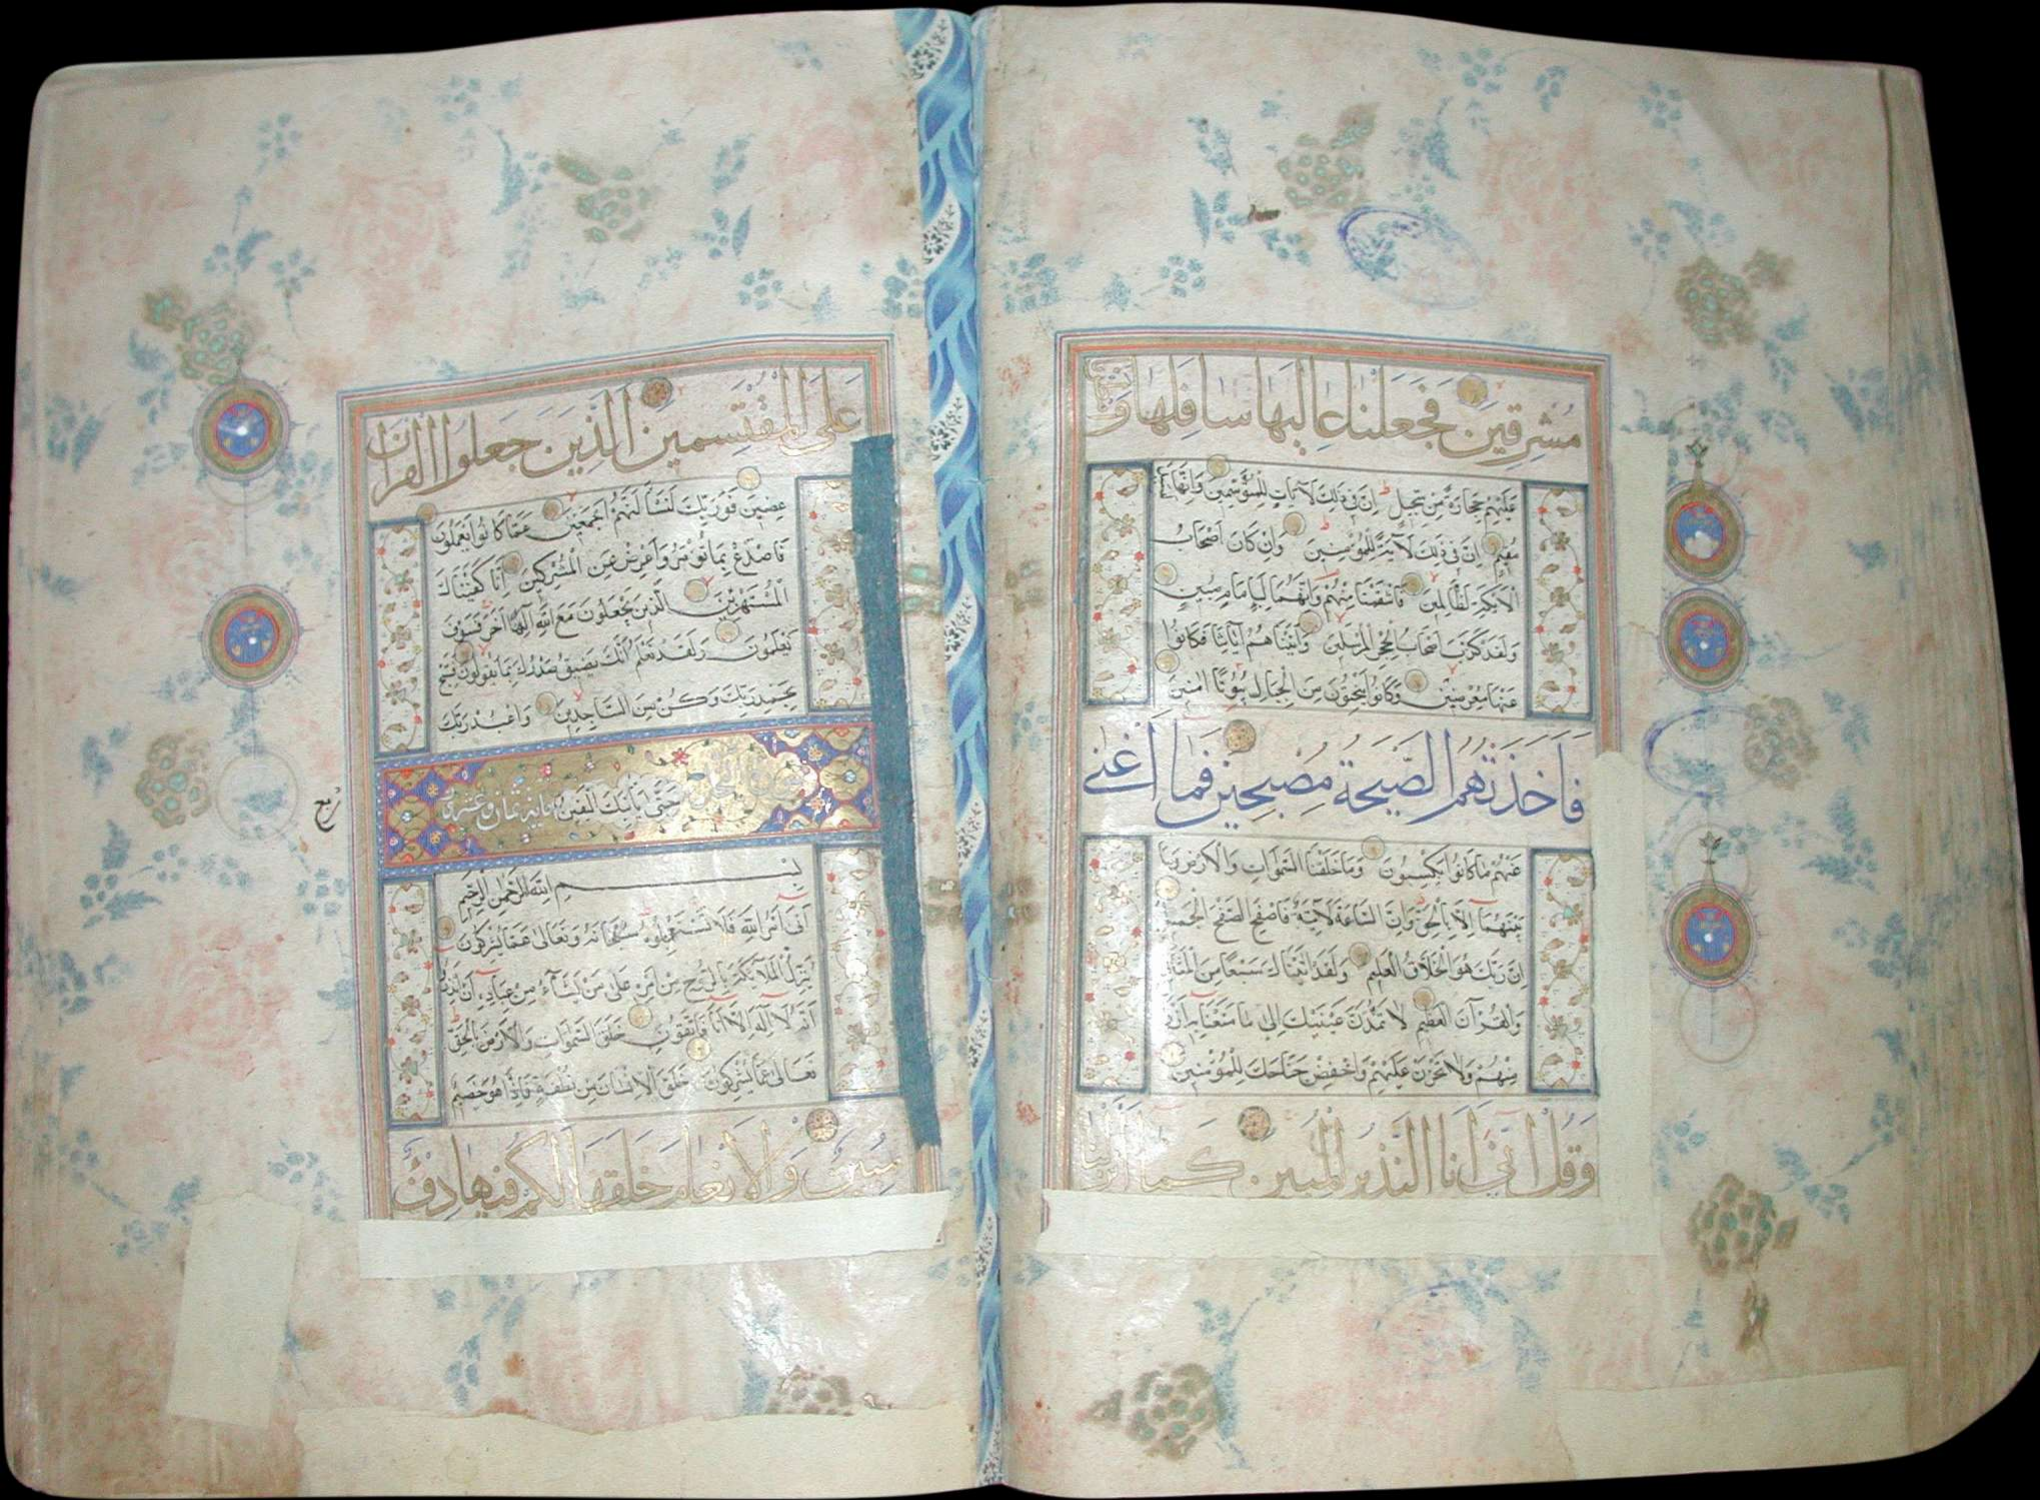 مشرقين فجعلنا عاليها سافلها وامطرنا
عليهم حجارة من سجيل ان في ذلك لآيات للمتوسمين وانها
مقيم ان في ذلك لآية للمؤمنين وان كان اصحاب
الايكة لظالمين فانتقمنا منهم وانهما لبامام مبين
ولقد كذب اصحاب الحجر المرسلين وآتيناهم آياتنا فكانوا
عنها معرضين وكانوا ينحتون من الجبال بيوتا آمنين
فاخذتهم الصيحة مصبحين فما اغنى
عنهم ما كانوا يكسبون وما خلقنا السموات والارض وما
بينهما الا بالحق وان الساعة لآتية فاصفح الصفح الجميل
ان ربك هو الخلاق العليم ولقد آتيناك سبعا من المثاني
والقرآن العظيم لا تمدن عينيك الى ما متعنا به ازواجا
منهم ولا تحزن عليهم واخفض جناحك للمؤمنين
وقل اني انا النذير المبين كما انزلنا
على المقتسمين الذين جعلوا القرآن
عضين فوربك لنسألنهم اجمعين عما كانوا يعملون
فاصدع بما تؤمر واعرض عن المشركين انا كفيناك
المستهزئين الذين يجعلون مع الله الها آخر فسوف
يعلمون ولقد نعلم انك يضيق صدرك بما يقولون فسبح
بحمد ربك وكن من الساجدين واعبد ربك
حتى يأتيك اليقين سورة النحل مائة وثمان وعشرون
ربع
بسم الله الرحمن الرحيم
اتى امر الله فلا تستعجلوه سبحانه وتعالى عما يشركون
ينزل الملائكة بالروح من امره على من يشاء من عباده ان انذروا
انه لا اله الا انا فاتقون خلق السموات والارض بالحق
تعالى عما يشركون خلق الانسان من نطفة فاذا هو خصيم
مبين والانعام خلقها لكم فيها دفء